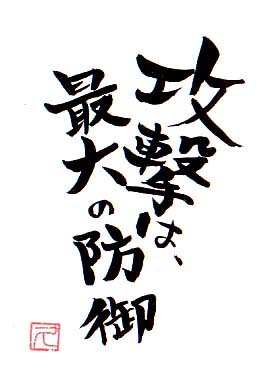 攻撃は、
最大の防御